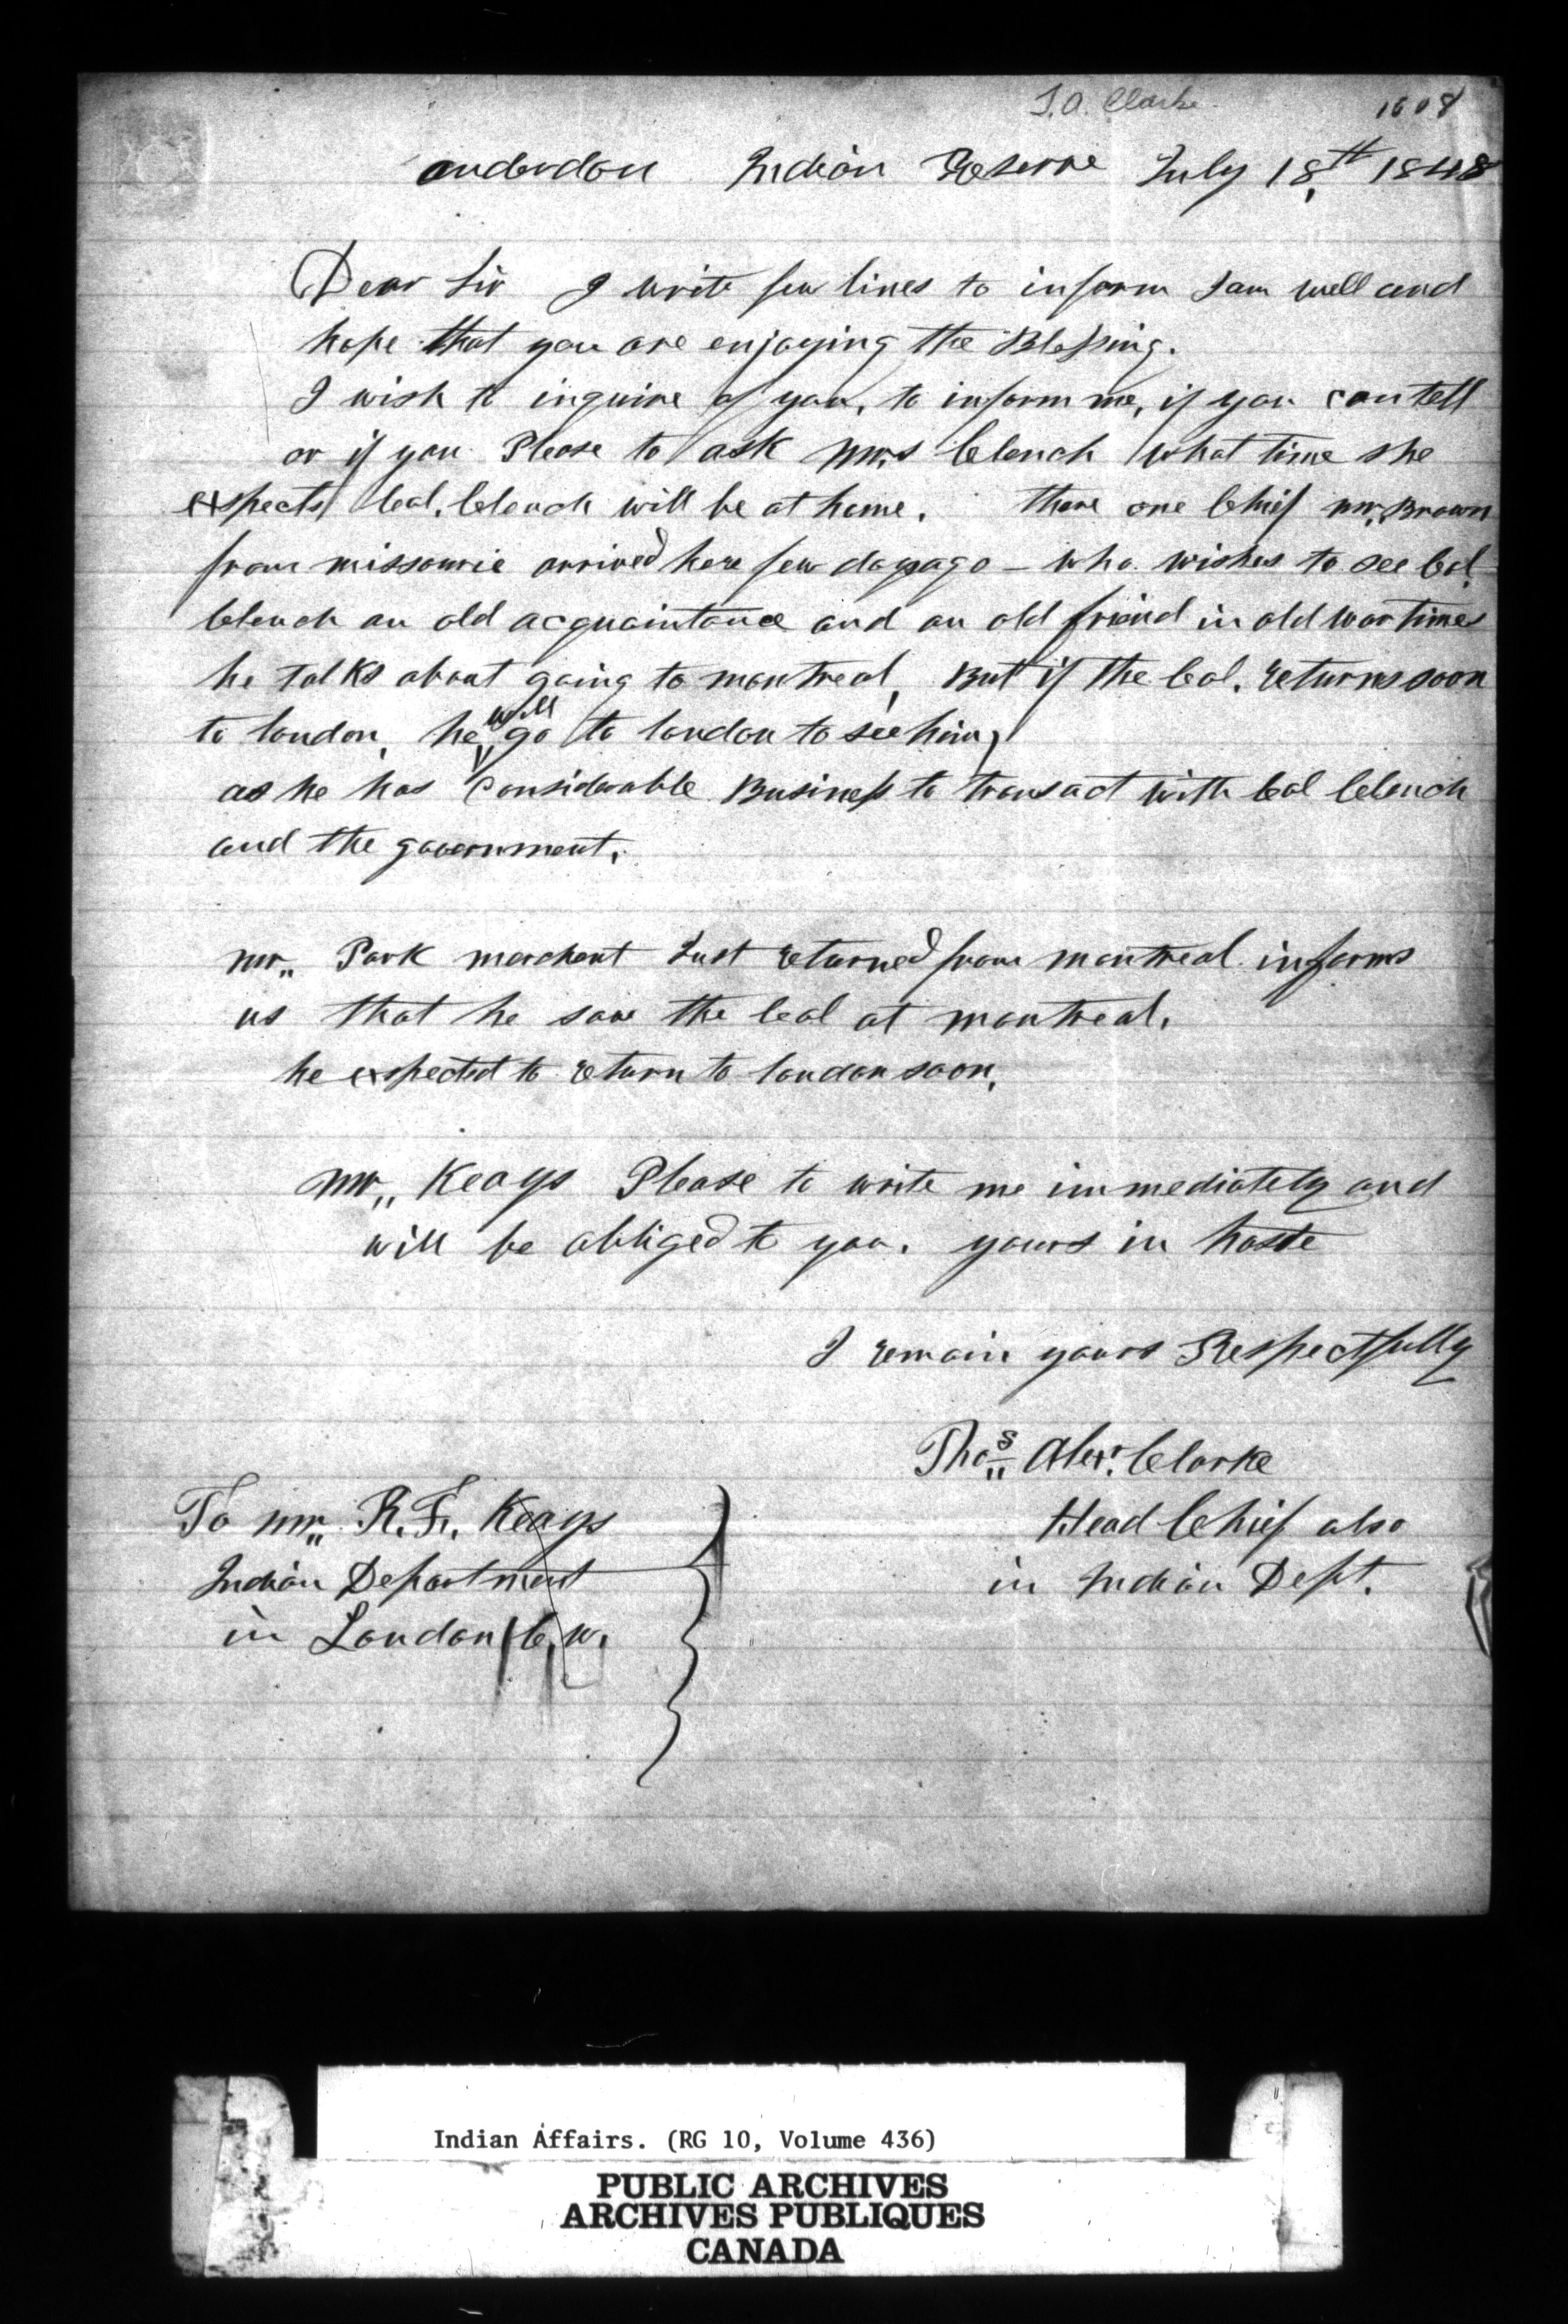 T. A. Clarke
1608
anderdon Indian Reserve July 18th 1848
Dear Sir I write few lines to inform I am well and
hope that you are enjoying the Blessing.
I wish to inquire of you, to inform me, if you can tell
or if you Please to ask Mrs Clench what time she
expects Col. Clench will be at home. there one Chief mr. Brown
from missourie arrived here few days ago – who wishes to see Col.
Clench an old acquaintance and an old friend in old war times
he talks about going to montreal, But if the Col. returns soon
to london, he will go to london to see him,
as he has Considerable Business to transact with Col Clench
and the government,
mr,, Park merchant Just returned from montreal informs
us that he saw the Col at montreal.
he expected to return to london soon,
Mr,, Keays Please to write me immediately and
will be obliged to you. yours in haste
I remain yours Respectfully
Thos,, Alexr. Clarke
Head Chief also
in Indian Dept.
To mr,, R. F. Keays
Indian Department
in London C. W.
Indian Affairs. (RG 10, Volume 436)
PUBLIC ARCHIVES
ARCHIVES PUBLIQUES
CANADA